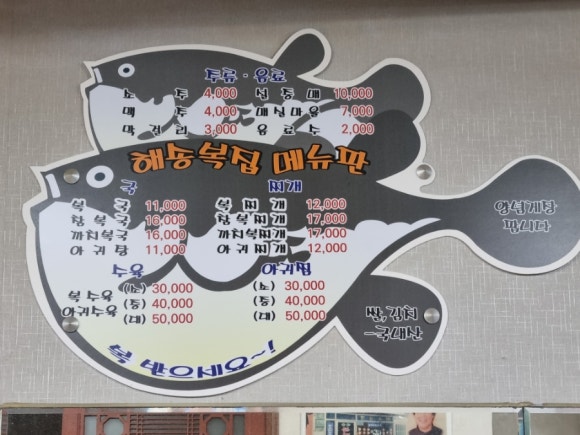 주류·음료
소 주 4,000 설 중 매 10,000
맥 주 4,000 매실마을 7,000
막 걸 리 3,000 음 료 수 2,000
해송복집 메뉴판
국 찌개
복 국 11,000 복 찌 개 12,000
참 복 국 16,000 참복찌개 17,000
까치복국 16,000 까치복찌개 17,000
아 귀 탕 11,000 아귀찌개 12,000
수육 아귀찜
(소) 30,000 (소) 30,000
복 수육 (중) 40,000 (중) 40,000
아귀수육 (대) 50,000 (대) 50,000
양념게장
팝니다
쌀,김치
-국내산
복 받으세요~!